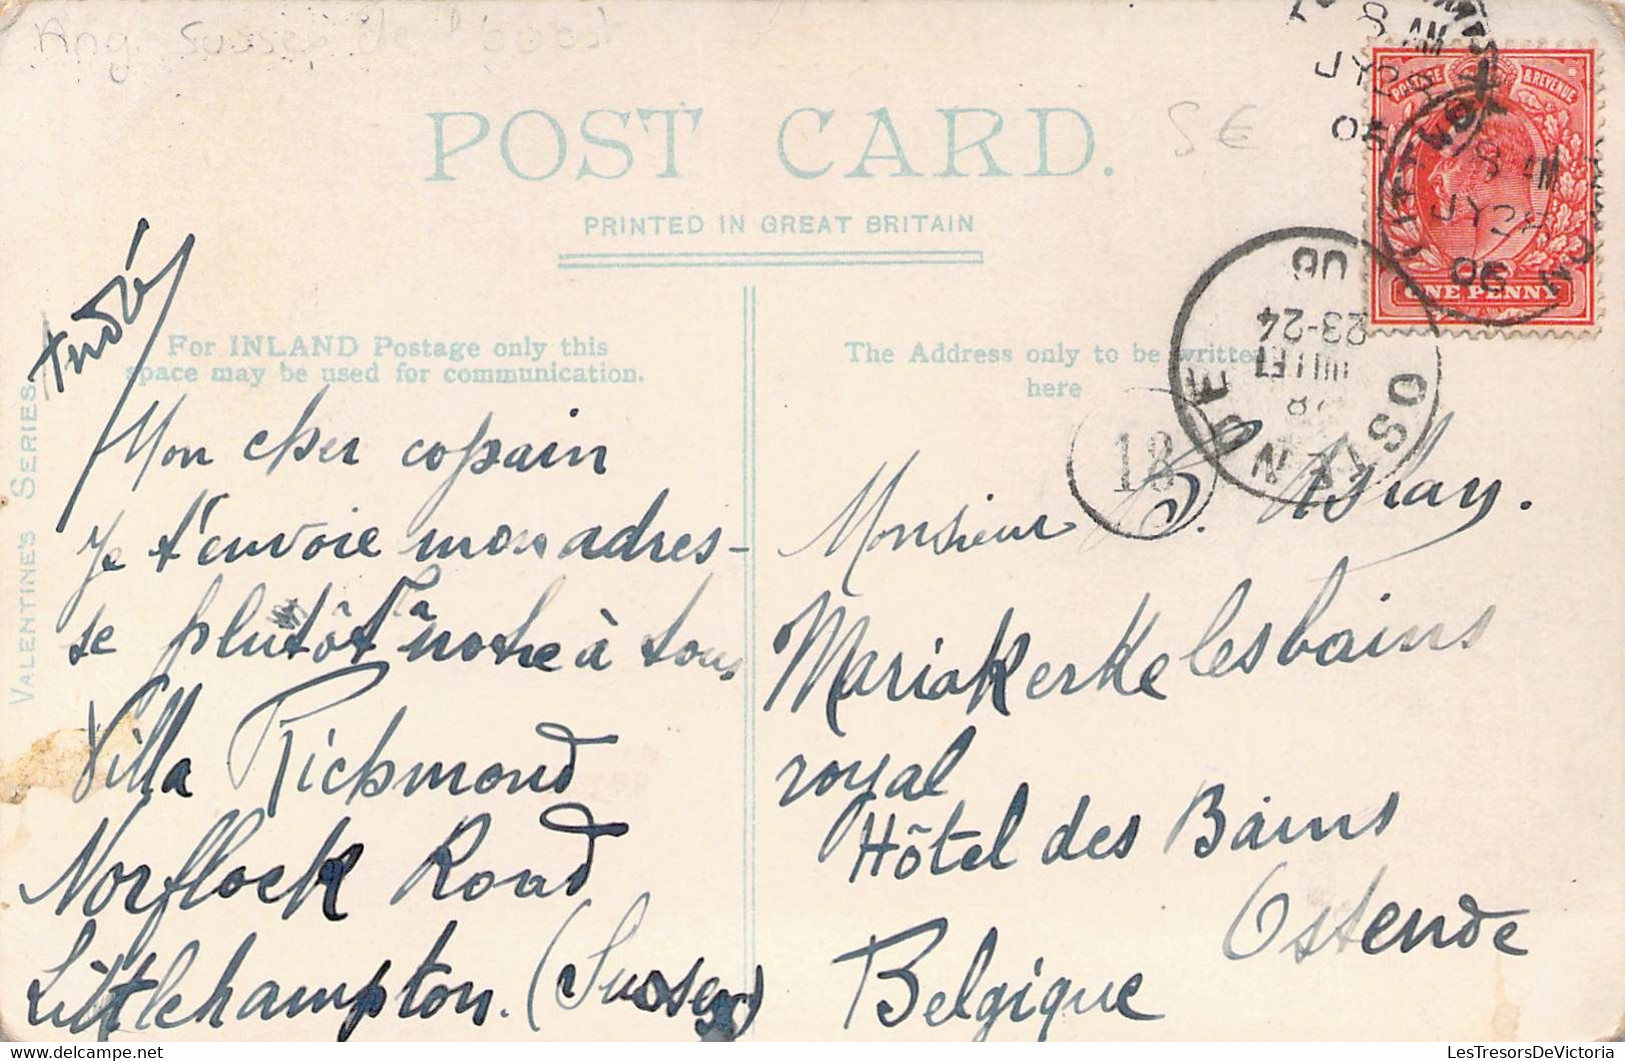 Ang. Sussex
POST CARD.
5 €
PRINTED IN GREAT BRITAIN
For INLAND Postage only this
space may be used for communication.
The Address only to be written
here
VALENTINE'S SERIES
André
Mon cher copain
Je t'envoie mon adres-
se plutôt la notre à tous
Villa Richmond
Norflock Road
Littlehampton. (Sussex)
Monsieur
Mariakerke les bains
royal
Hôtel des Bains
Ostende
Belgique
POSTAGE & REVENUE
ONE PENNY
8 AM
JY 28
06
8 AM
JY 28
06
OSTENDE
28
JUILLET
23-24
06
18
LesTresorsDeVictoria